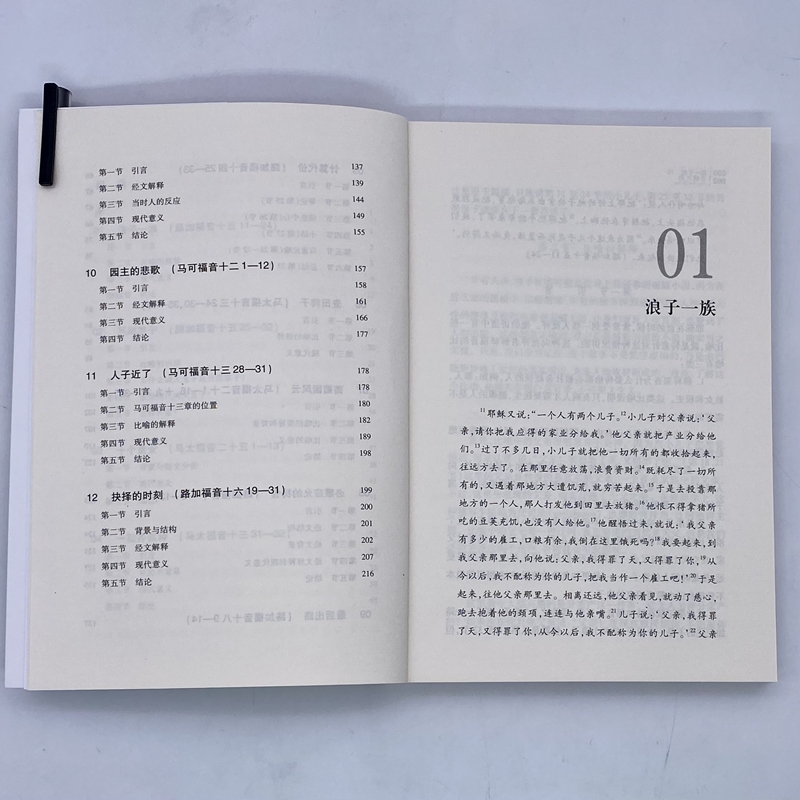 第一节 引言 137
第二节 经文解释 139
第三节 当时人的反应 144
第四节 现代意义 149
第五节 结论 155
10 园主的悲歌 （马可福音十二1—12） 157
第一节 引言 158
第二节 经文解释 161
第三节 现代意义 166
第四节 结论 177
11 人子近了 （马可福音十三28—31） 178
第一节 引言 178
第二节 马可福音十三章的位置 180
第三节 比喻的解释 182
第四节 现代意义 189
第五节 结论 198
12 抉择的时刻 （路加福音十六19—31） 199
第一节 引言 200
第二节 背景与结构 201
第三节 经文解释 202
第四节 现代意义 207
第五节 结论 216
01
浪子一族
11耶稣又说：“一个人有两个儿子。12小儿子对父亲说：‘父
亲，请你把我应得的家业分给我。’他父亲就把产业分给他
们。13过了不多几日，小儿子就把他一切所有的都收拾起来，
往远方去了。在那里任意放荡，浪费资财。14既耗尽了一切所
有的，又遇着那地方大遭饥荒，就穷苦起来。15于是去投靠那
地方的一个人，那人打发他到田里去放猪。16他恨不得拿猪所
吃的豆荚充饥，也没有人给他。17他醒悟过来，就说：‘我父亲
有多少的雇工，口粮有余，我倒在这里饿死吗？18我要起来，到
我父亲那里去，向他说：父亲，我得罪了天，又得罪了你，19从
今以后，我不配称为你的儿子，把我当作一个雇工吧！’20于是
起来，往他父亲那里去。相离还远，他父亲看见，就动了慈心，
跑去抱着他的颈项，连连与他亲嘴。21儿子说：‘父亲，我得罪
了天，又得罪了你，从今以后，我不配称为你的儿子。’22父亲